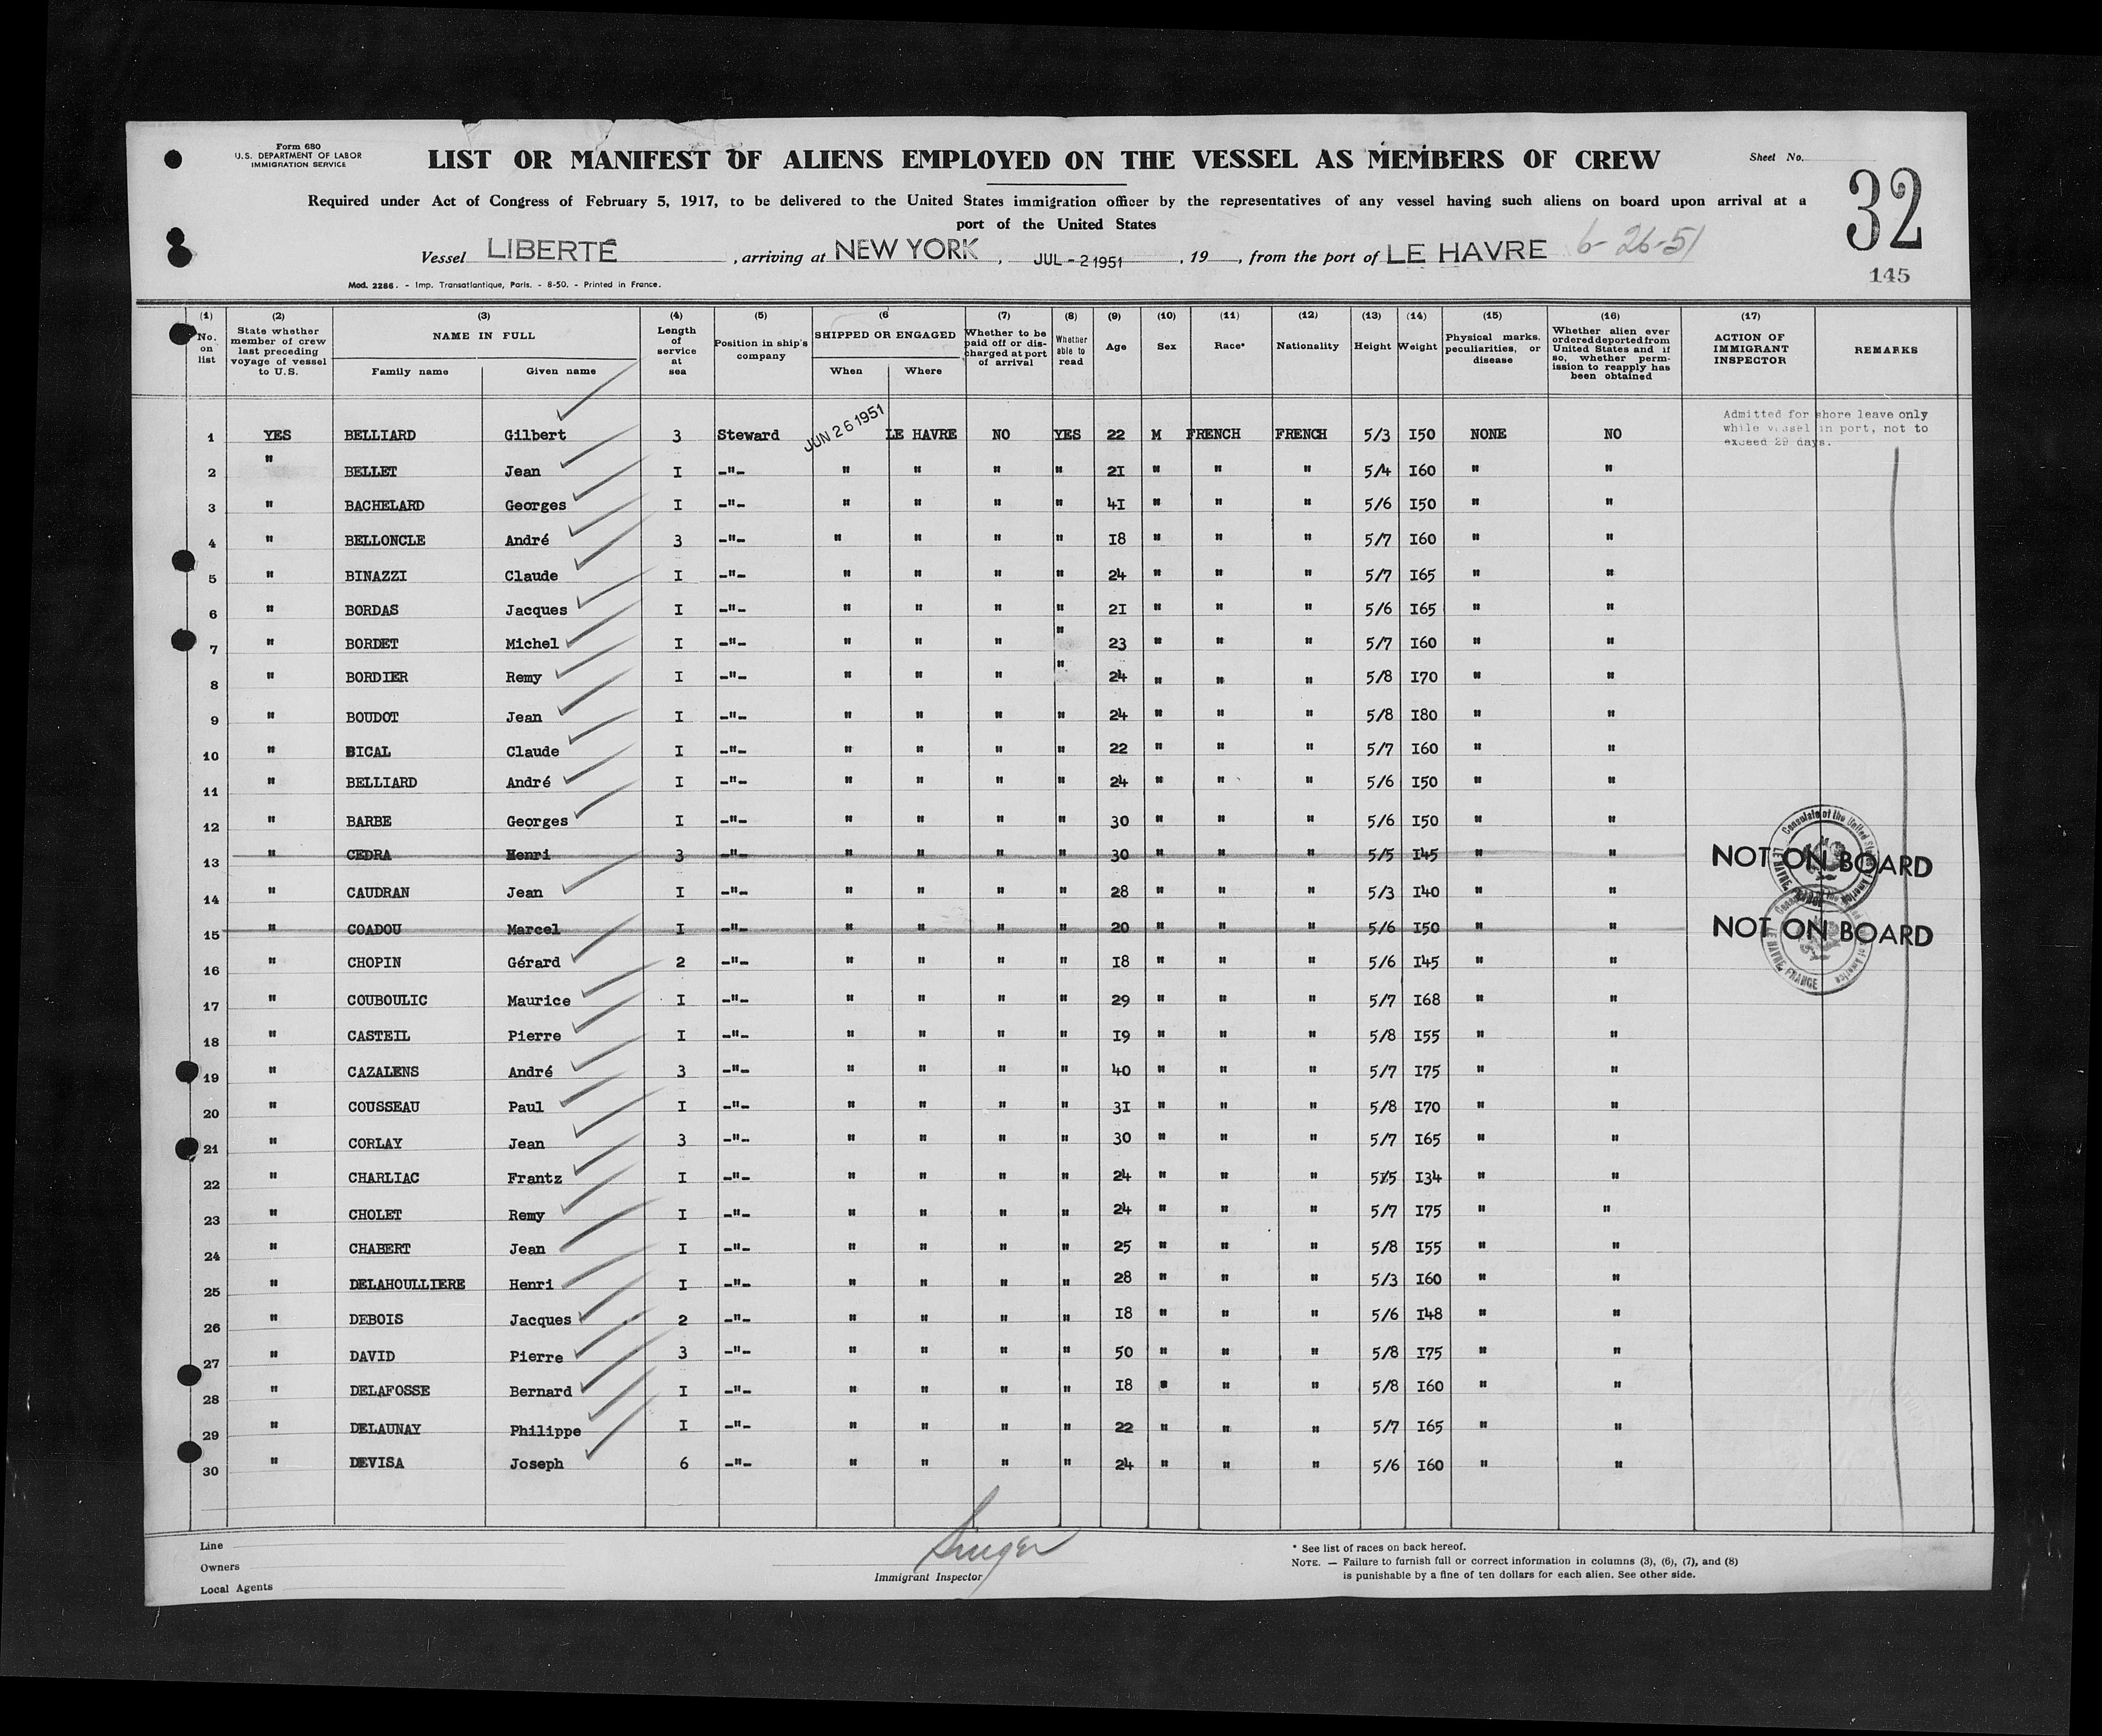 Form 680
U.S. DEPARTMENT OF LABOR
IMMIGRATION SERVICE
LIST OR MANIFEST OF ALIENS EMPLOYED ON THE VESSEL AS MEMBERS OF CREW
Sheet No.
32
Required under Act of Congress of February 5, 1917, to be delivered to the United States immigration officer by the representatives of any vessel having such aliens on board upon arrival at a
port of the United States
Vessel LIBERTÉ , arriving at NEW YORK , JUL - 2 1951 , 19 , from the port of LE HAVRE 6-26-51
145
Mod. 2286. - Imp. Transatlantique, Paris. - 8-50. - Printed in France.
(1) No. on list (2) State whether member of crew last preceding voyage of vessel to U.S. (3) NAME IN FULL Family name Given name (4) Length of service at sea (5) Position in ship's company (6 SHIPPED OR ENGAGED When Where (7) Whether to be paid off or discharged at port of arrival (8) Whether able to read (9) Age (10) Sex (11) Race* (12) Nationality (13) Height (14) Weight (15) Physical marks, peculiarities, or disease (16) Whether alien ever ordered deported from United States and if so, whether permission to reapply has been obtained (17) ACTION OF IMMIGRANT INSPECTOR REMARKS
Admitted for shore leave only
while vessel in port, not to
exceed 29 days.
1 YES BELLIARD Gilbert 3 Steward JUN 26 1951 LE HAVRE NO YES 22 M FRENCH FRENCH 5/3 I50 NONE NO
2 " BELLET Jean I -"- " " " " 2I " " " 5/4 I60 " "
3 " BACHELARD Georges I -"- " " " " 4I " " " 5/6 I50 " "
4 " BELLONCLE André 3 -"- " " " " I8 " " " 5/7 I60 " "
5 " BINAZZI Claude I -"- " " " " 24 " " " 5/7 I65 " "
6 " BORDAS Jacques I -"- " " " " 2I " " " 5/6 I65 " "
7 " BORDET Michel I -"- " " " " 23 " " " 5/7 I60 " "
8 " BORDIER Remy I -"- " " " " 24 " " " 5/8 I70 " "
9 " BOUDOT Jean I -"- " " " " 24 " " " 5/8 I80 " "
10 " BICAL Claude I -"- " " " " 22 " " " 5/7 I60 " "
11 " BELLIARD André I -"- " " " " 24 " " " 5/6 I50 " "
12 " BARBE Georges I -"- " " " " 30 " " " 5/6 I50 " "
13 " CEDRA Henri 3 -"- " " " " 30 " " " 5/5 I45 " " NOT ON BOARD
14 " CAUDRAN Jean I -"- " " " " 28 " " " 5/3 I40 " "
15 " COADOU Marcel I -"- " " " " 20 " " " 5/6 I50 " " NOT ON BOARD
16 " CHOPIN Gérard 2 -"- " " " " I8 " " " 5/6 I45 " "
17 " COUBOULIC Maurice I -"- " " " " 29 " " " 5/7 I68 " "
18 " CASTEIL Pierre I -"- " " " " I9 " " " 5/8 I55 " "
19 " CAZALENS André 3 -"- " " " " 40 " " " 5/7 I75 " "
20 " COUSSEAU Paul I -"- " " " " 3I " " " 5/8 I70 " "
21 " CORLAY Jean 3 -"- " " " " 30 " " " 5/7 I65 " "
22 " CHARLIAC Frantz I -"- " " " " 24 " " " 5/5 I34 " "
23 " CHOLET Remy I -"- " " " " 24 " " " 5/7 I75 " "
24 " CHABERT Jean I -"- " " " " 25 " " " 5/8 I55 " "
25 " DELAHOULLIERE Henri I -"- " " " " 28 " " " 5/3 I60 " "
26 " DEBOIS Jacques 2 -"- " " " " I8 " " " 5/6 I48 " "
27 " DAVID Pierre 3 -"- " " " " 50 " " " 5/8 I75 " "
28 " DELAFOSSE Bernard I -"- " " " " I8 " " " 5/8 I60 " "
29 " DELAUNAY Philippe I -"- " " " " 22 " " " 5/7 I65 " "
30 " DEVISA Joseph 6 -"- " " " " 24 " " " 5/6 I60 " "
Consulate of the United States of America
LE HAVRE, FRANCE
LE HAVRE, FRANCE
Line
Owners
Local Agents
Singer
Immigrant Inspector
* See list of races on back hereof.
NOTE. — Failure to furnish full or correct information in columns (3), (6), (7), and (8)
is punishable by a fine of ten dollars for each alien. See other side.